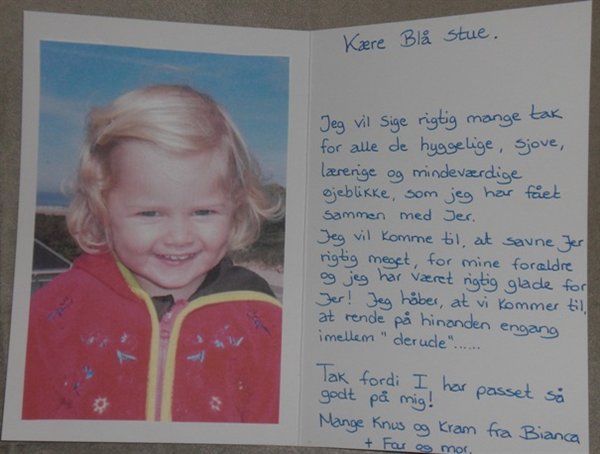 Kære Blå Stue.
Jeg vil sige rigtig mange tak
for alle de hyggelige, sjove,
lærerige og mindeværdige
øjeblikke, som jeg har fået
sammen med Jer.
Jeg vil komme til, at savne Jer
rigtig meget, for mine forældre
og jeg har været rigtig glade for
Jer! Jeg håber, at vi kommer til,
at rende på hinanden engang
imellem "derude".....
Tak fordi I har passet så
godt på mig!
Mange Knus og Kram fra Bianca
+ Far og mor.